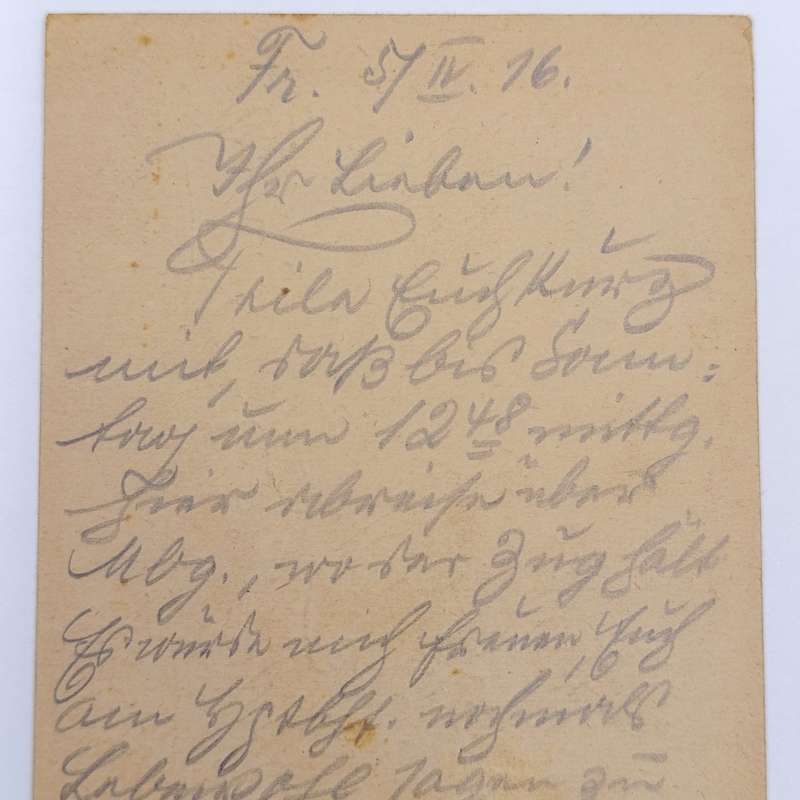 Fr. 5/IV. 16.
Ihr Lieben!
Teile Euch kurz
mit, daß bis Sonn=
tag um 12 48 mittg.
hier abreise über
Mbg., wo der Zug hält
Es würde mich freuen, Euch
am Hptbhf. nochmals
Lebewohl sagen zu